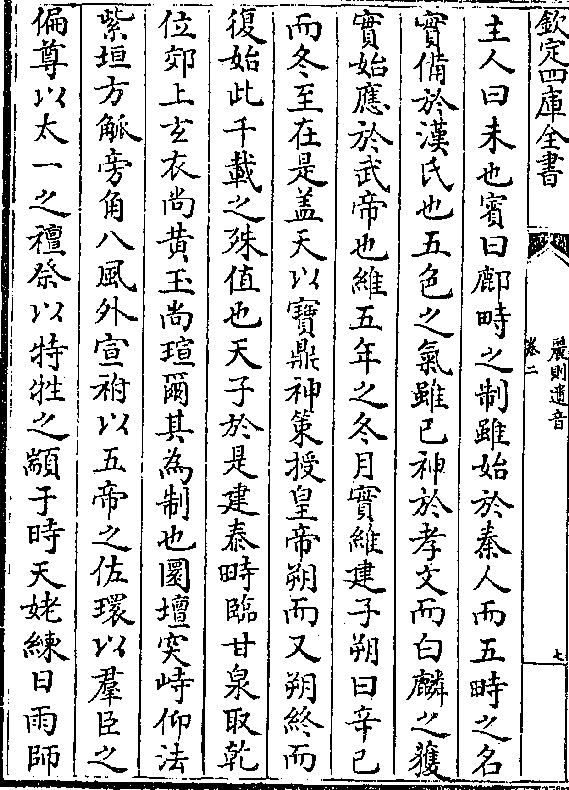 欽定四庫全書
麗則遺音
卷二
七
主人曰未也賓曰鄜畤之制雖始於秦人而五畤之名
實備於漢氏也五色之氣雖已神於孝文而白麟之獲
實始應於武帝也維五年之冬月實維建子朔曰辛巳
而冬至在是盖天以寶鼎神策授皇帝朔而又朔終而
復始此千載之殊值也天子於是建泰畤臨甘泉取乾
位郊上玄衣尚黄玉尚瑄爾其為制也圜壇突峙仰法
紫垣方觚旁角八風外宣祔以五帝之佐環以羣臣之
偏尊以太一之禋祭以特牲之顓于時天姥練日雨師